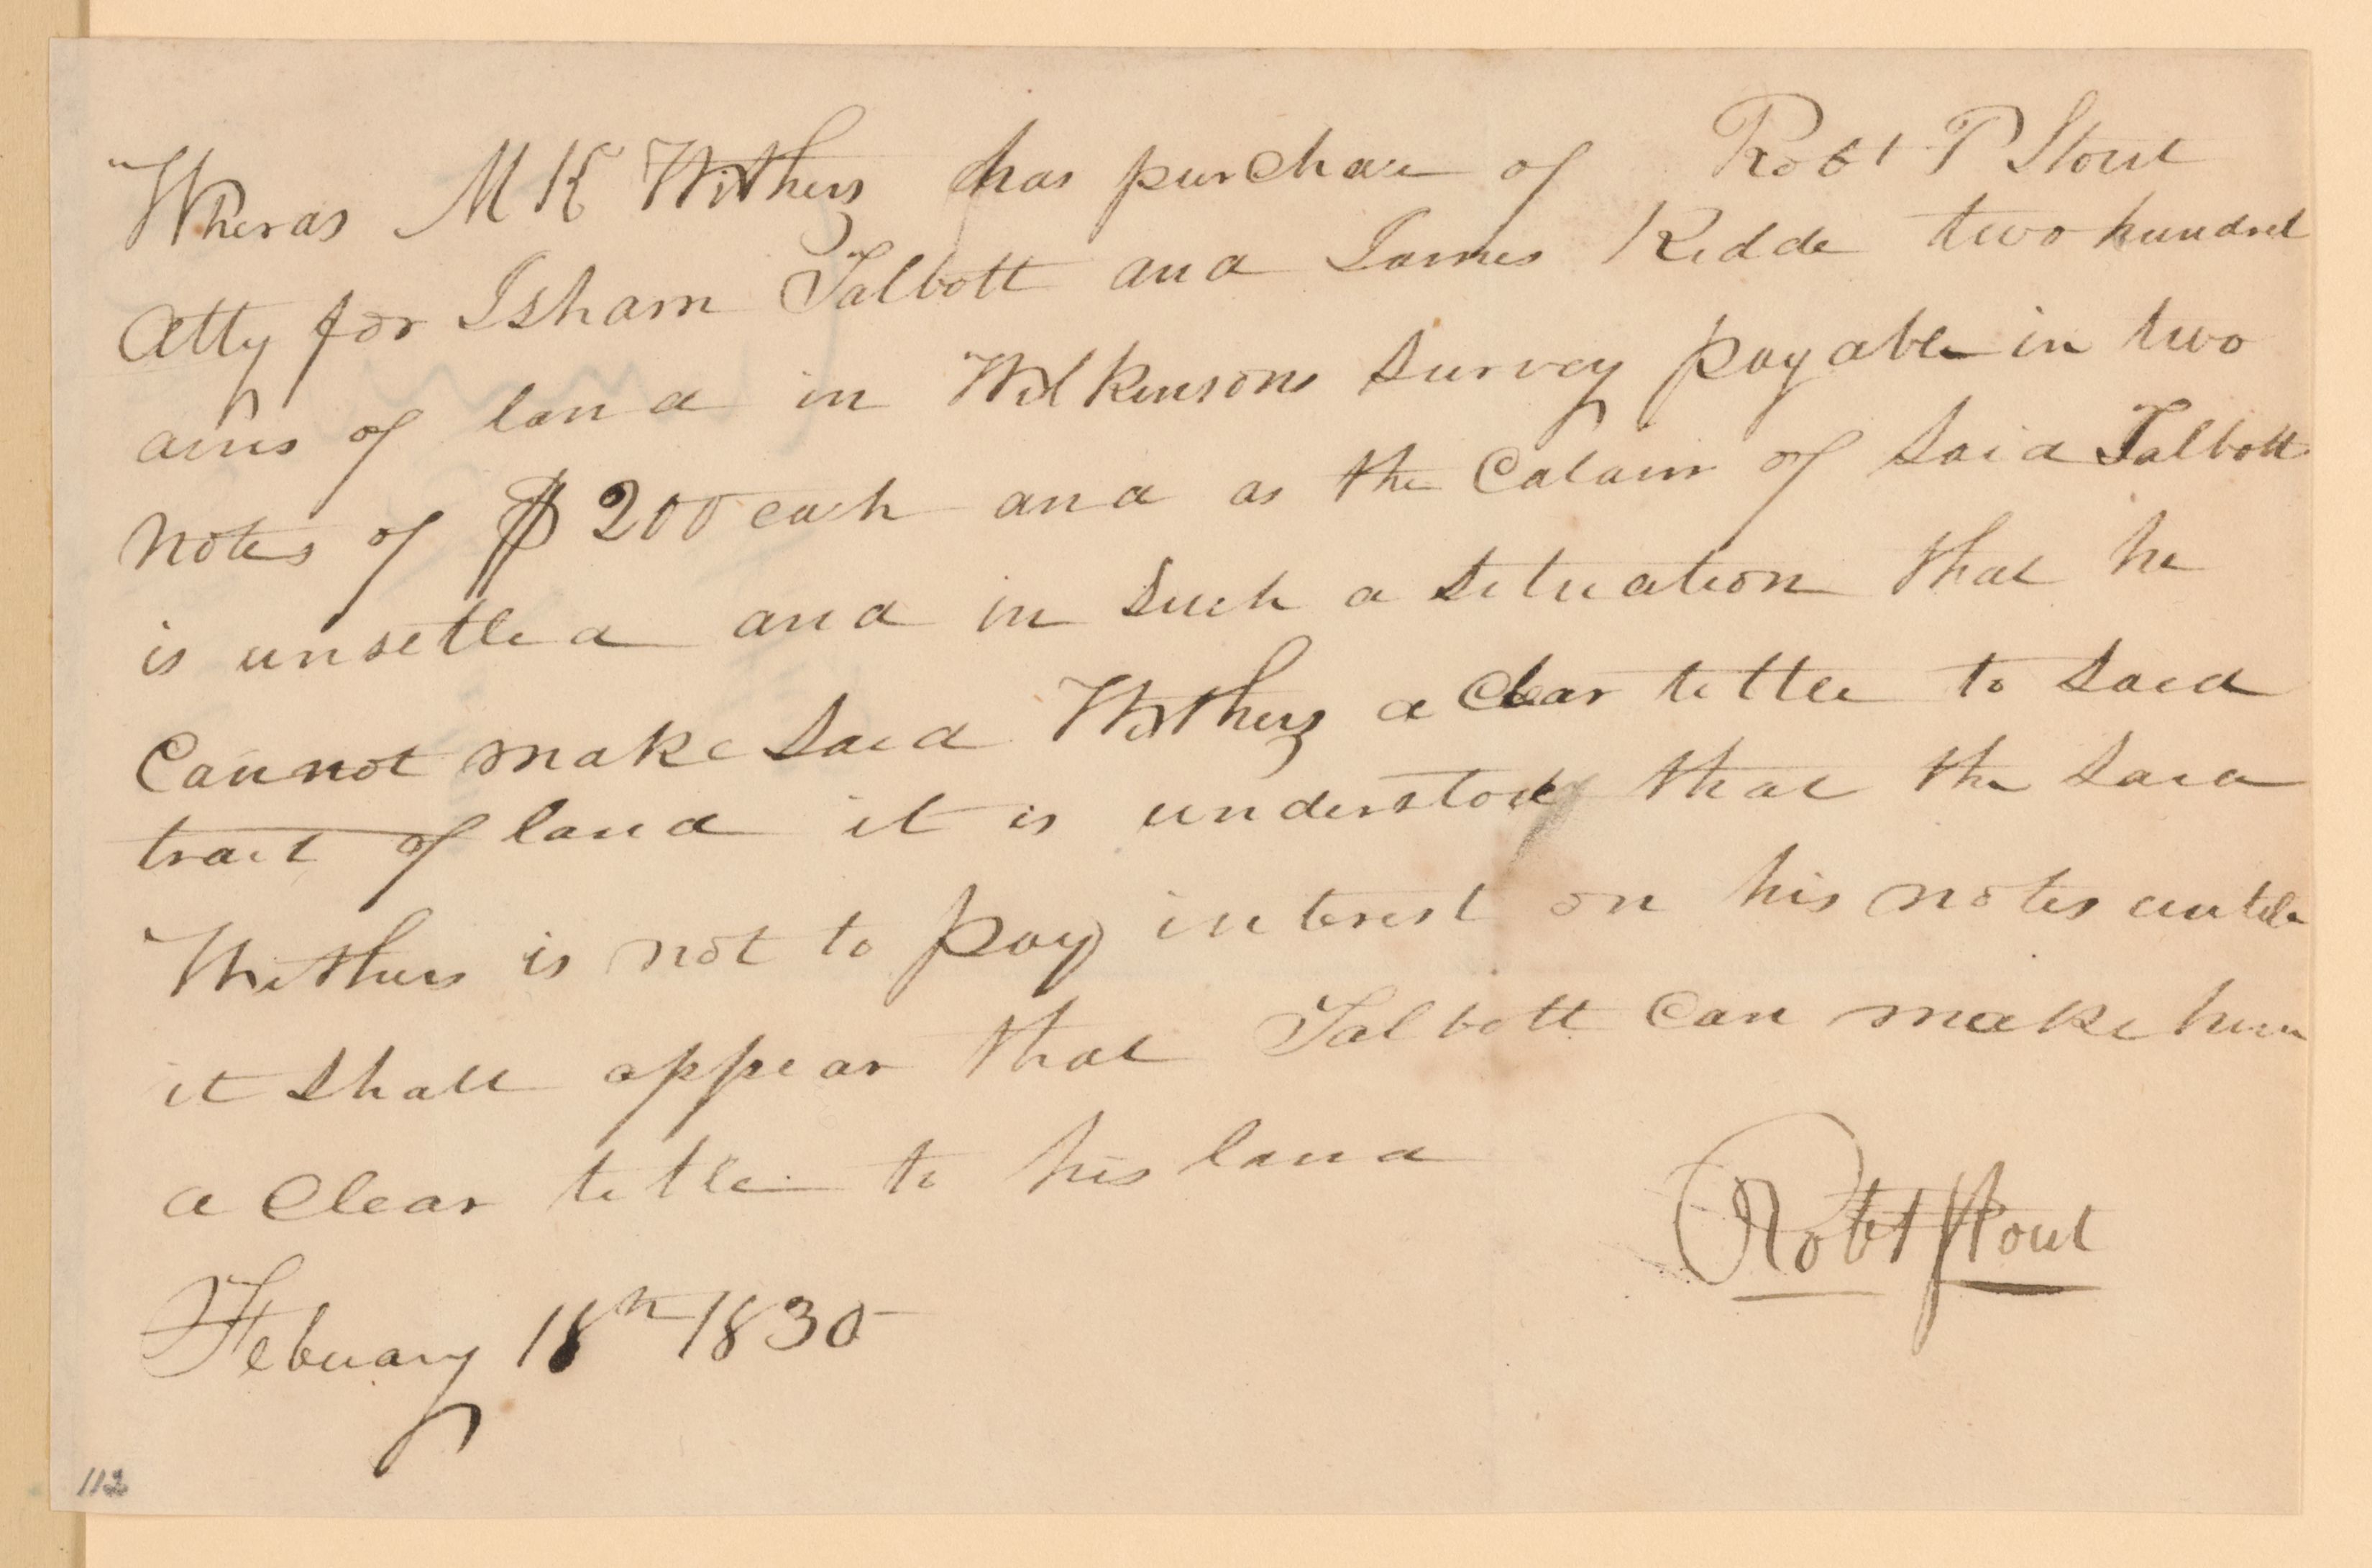 Wheras M K Withers has purchase of Robt P Stout
Atty for Isham Talbott and James Kidde two hundred
acrs of land in Wilkinsons Survey payable in two
notes of $200 each and as the Calaim of Said Talbott
is unsetled and in Such a Situation that he
Cannot make Said Withers a Clear tittle to Said
tract of land it is understood that the Said
Withers is not to pay interest on his notes untile
it Shall appear that Talbott Can make him
a Clear tittle to his land
Robt Stout
Febuary 18th 1830
112